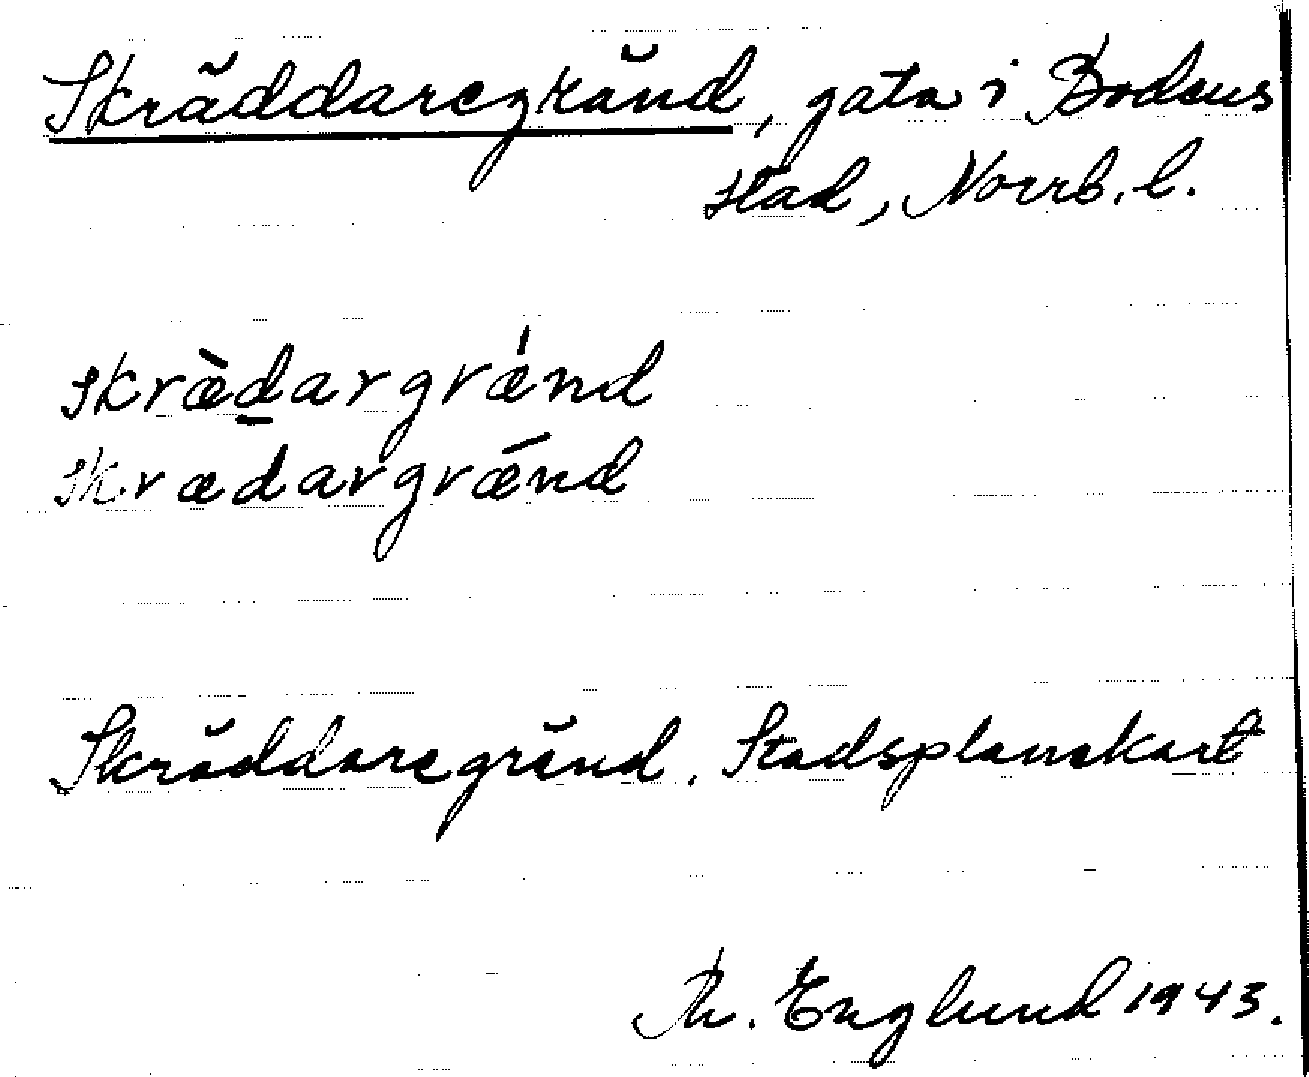 Skräddaregränd, gata i Bodens
stad, Norrb. l.
skræ̀d̲argrǽnd
skrædargrǽnd
Skräddaregränd. Stadsplanekart
Th. Englund 1943.